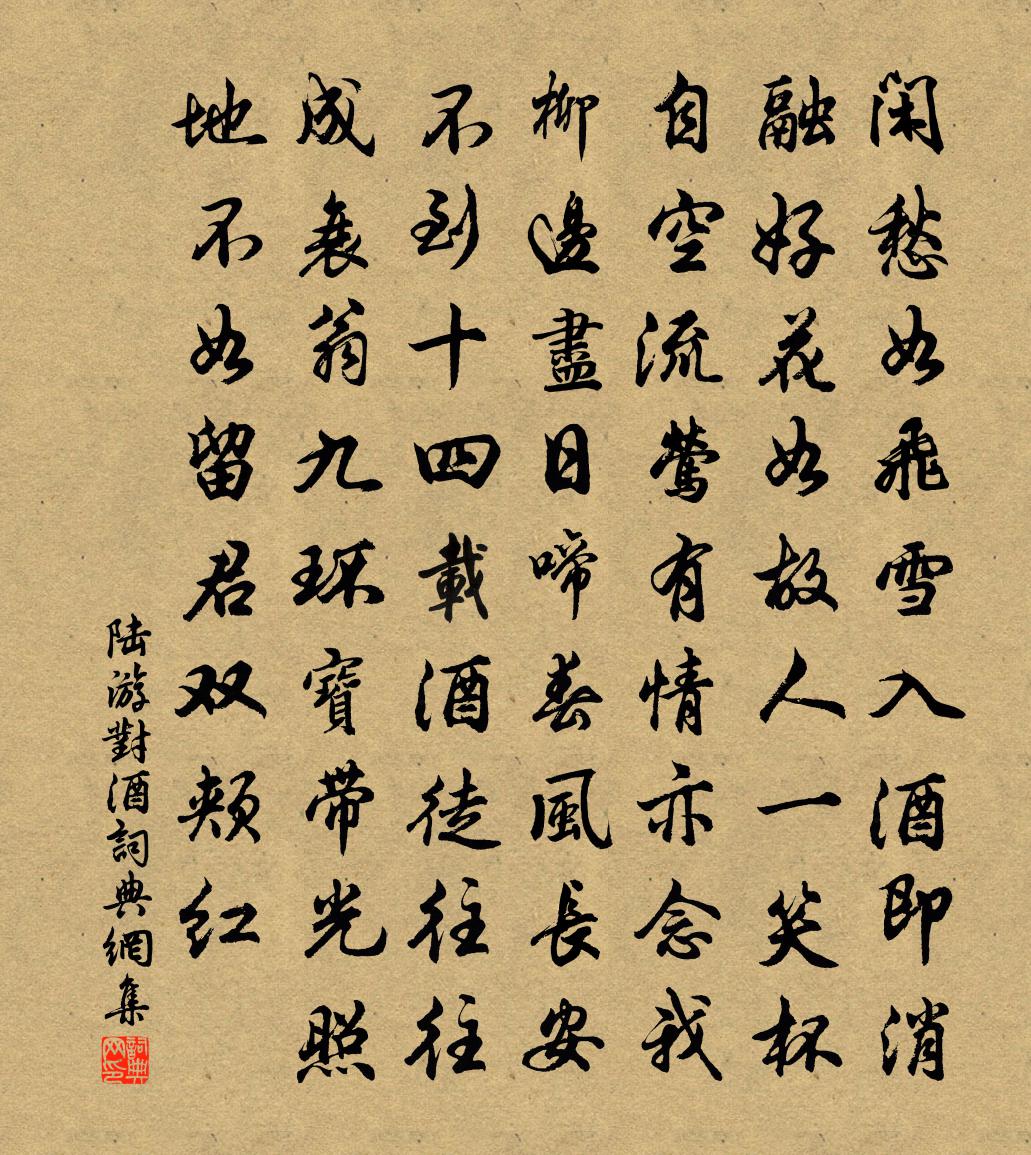 闲愁如飛雪入酒即消
融好花如故人一笑杯
自空流鶯有情亦念我
柳邊盡日啼春風長安
不到十四載酒徒往往
成衰翁九环寶带光照
地不如留君双頰红
陆游對酒詞典網集
詞典网印